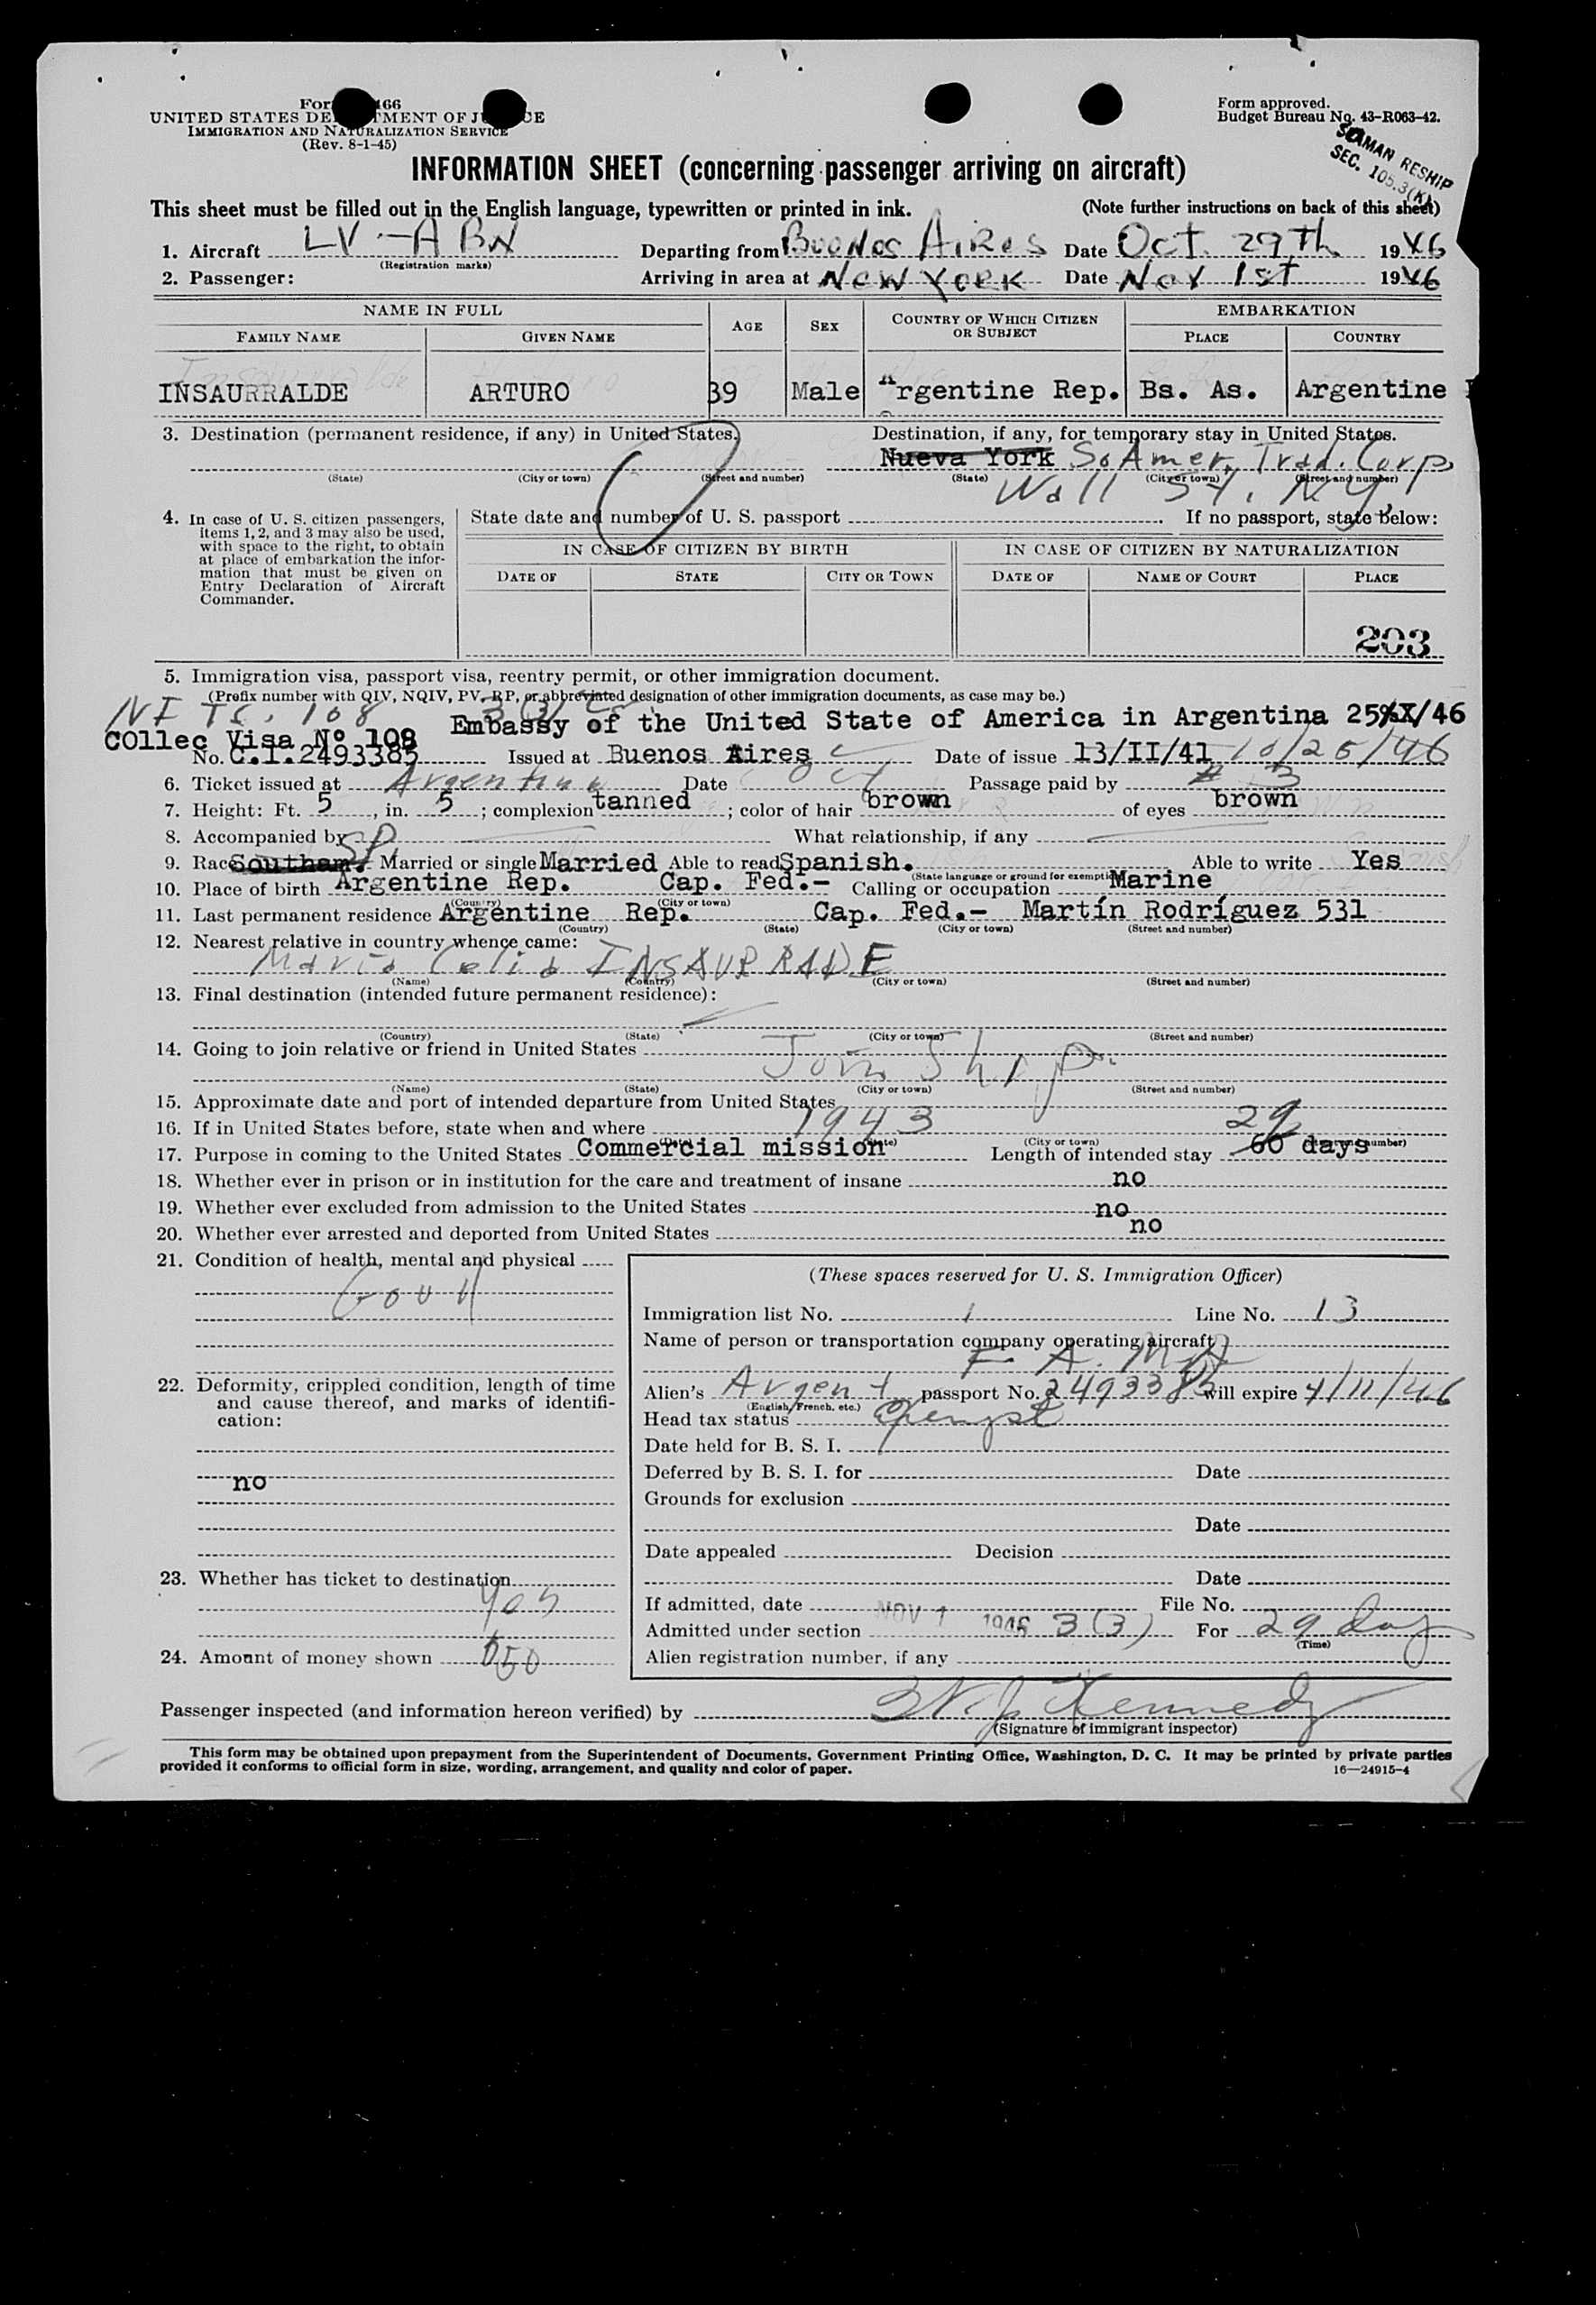 UNITED STATES DEPARTMENT OF JUSTICE
IMMIGRATION AND NATURALIZATION SERVICE
(Rev. 8-1-45)
Form approved.
Budget Bureau No. 43-R063-42.
SEAMAN RESHIP
SEC. 105.3(K)
INFORMATION SHEET (concerning passenger arriving on aircraft)
This sheet must be filled out in the English language, typewritten or printed in ink. (Note further instructions on back of this sheet)
1. Aircraft LV-ABN Departing from Buenos Aires Date Oct. 29th 1946
(Registration marks)
2. Passenger: Arriving in area at New York Date Nov 1st 1946
NAME IN FULL AGE SEX COUNTRY OF WHICH CITIZEN OR SUBJECT EMBARKATION
FAMILY NAME GIVEN NAME PLACE COUNTRY
INSAURRALDE ARTURO 39 Male Argentine Rep. Bs. As. Argentine
3. Destination (permanent residence, if any) in United States. Destination, if any, for temporary stay in United States.
Nueva York So Amer. Trad. Corp.
(State) (City or town) (Street and number) (State) (City or town) (Street and number)
Wall St. N.Y.
4. In case of U. S. citizen passengers, items 1, 2, and 3 may also be used, with space to the right, to obtain at place of embarkation the information that must be given on Entry Declaration of Aircraft Commander.
State date and number of U. S. passport . If no passport, state below:
IN CASE OF CITIZEN BY BIRTH IN CASE OF CITIZEN BY NATURALIZATION
DATE OF STATE CITY OR TOWN DATE OF NAME OF COURT PLACE
203
5. Immigration visa, passport visa, reentry permit, or other immigration document.
(Prefix number with QIV, NQIV, PV, RP, or abbreviated designation of other immigration documents, as case may be.)
108 3(3)
Embassy of the United State of America in Argentina 25/X/46
COllec Visa Nº 108
No. C.I.2493385 Issued at Buenos Aires Date of issue 13/II/41 10/25/46
6. Ticket issued at Argentina Date Oct Passage paid by # 3
7. Height: Ft. 5, in. 5; complexion tanned; color of hair brown of eyes brown
8. Accompanied by What relationship, if any
9. Race Southam. SP Married or single Married Able to read Spanish. Able to write Yes
(State language or ground for exemption)
10. Place of birth Argentine Rep. Cap. Fed.- Calling or occupation Marine
(Country) (City or town)
11. Last permanent residence Argentine Rep. Cap. Fed.- Martín Rodríguez 531
(Country) (State) (City or town) (Street and number)
12. Nearest relative in country whence came:
Maria Celia INSAURRADE
(Name) (Country) (City or town) (Street and number)
13. Final destination (intended future permanent residence):
(Country) (State) (City or town) (Street and number)
14. Going to join relative or friend in United States
Join Ship.
(Name) (State) (City or town) (Street and number)
15. Approximate date and port of intended departure from United States
16. If in United States before, state when and where 1943
(Date) (State) (City or town) (Street and number)
17. Purpose in coming to the United States Commercial mission Length of intended stay 60 days 29
18. Whether ever in prison or in institution for the care and treatment of insane no
19. Whether ever excluded from admission to the United States no
20. Whether ever arrested and deported from United States no
21. Condition of health, mental and physical
Good
22. Deformity, crippled condition, length of time and cause thereof, and marks of identification:
no
23. Whether has ticket to destination
yes
24. Amount of money shown $50
(These spaces reserved for U. S. Immigration Officer)
Immigration list No. 1 Line No. 13
Name of person or transportation company operating aircraft
F A M A
Alien's Argent passport No. 2493385 will expire 4/11/46
(English, French, etc.)
Head tax status Exempt
Date held for B. S. I.
Deferred by B. S. I. for Date
Grounds for exclusion
Date
Date appealed Decision
Date
If admitted, date NOV 1 1946 File No.
Admitted under section 3(3) For 29 day
(Time)
Alien registration number, if any
Passenger inspected (and information hereon verified) by Kennedy
(Signature of immigrant inspector)
This form may be obtained upon prepayment from the Superintendent of Documents, Government Printing Office, Washington, D. C. It may be printed by private parties
provided it conforms to official form in size, wording, arrangement, and quality and color of paper. 16—24915-4